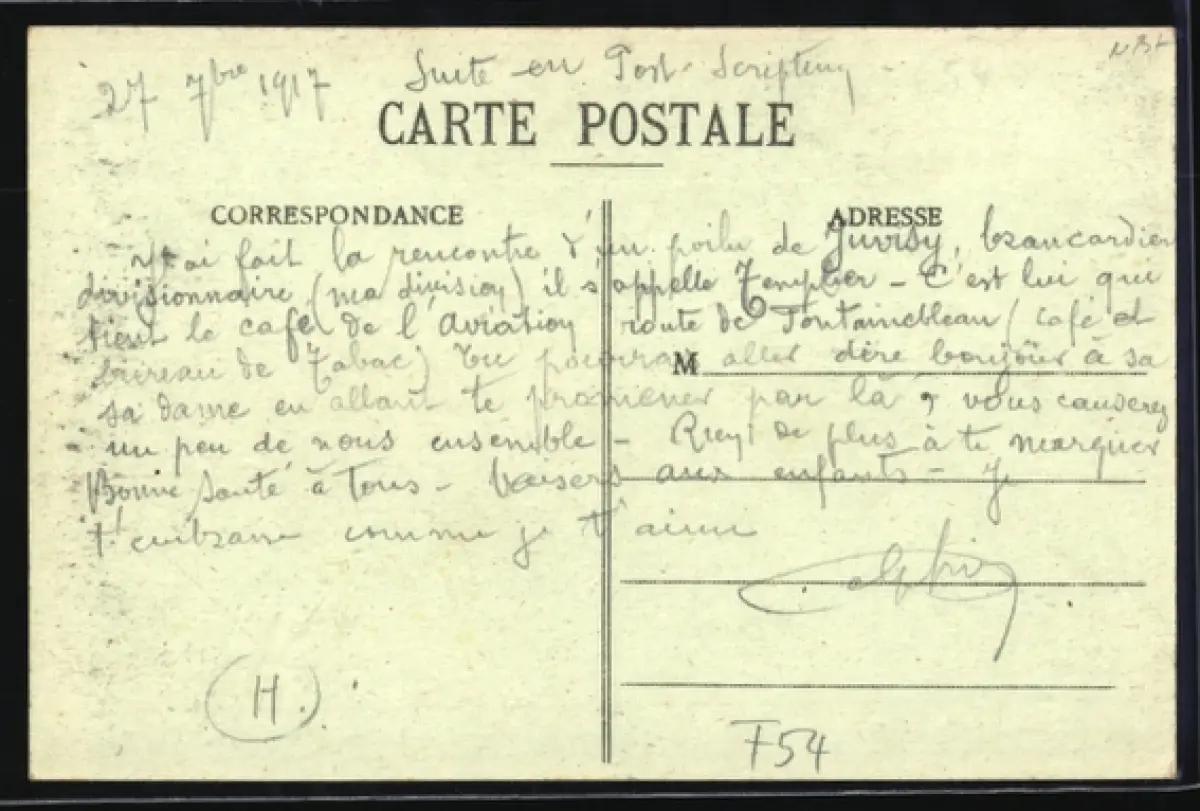 27 7bre 1917 Suite en Post-Scriptum
CARTE POSTALE
CORRESPONDANCE
ADRESSE
J'ai fait la rencontre d'un poilu de Juvisy, brancardier
divisionnaire (ma division) il s'appelle Templier - C'est lui qui
tient le café de l'Aviation route de Fontainebleau (café et
bureau de Tabac) tu pourras aller dire bonjour à sa
M
sa dame en allant te promener par là, vous causerez
un peu de nous ensemble - Rien de plus à te marquer
Bonne santé à tous - Baisers aux enfants - Je
t'embrasse comme je t'aime
H.
F54